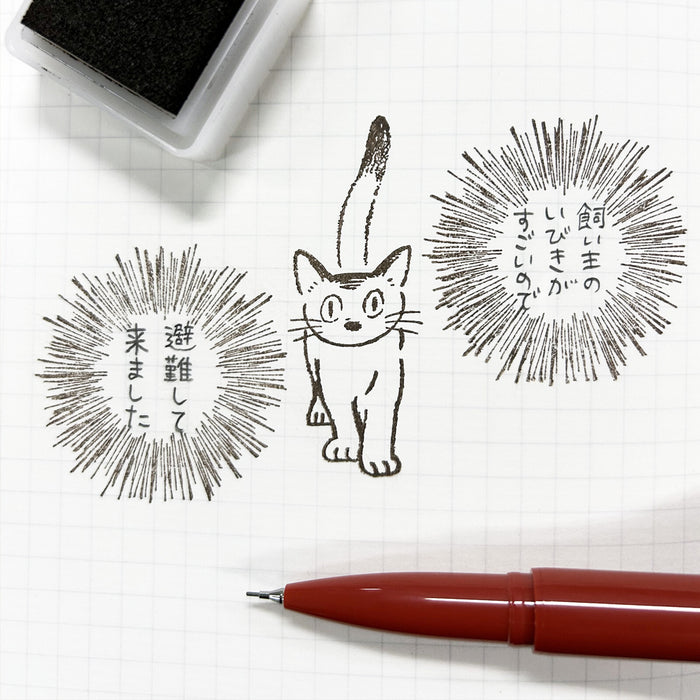 飼い主の
いびきが
すごいので
避難して
来ました